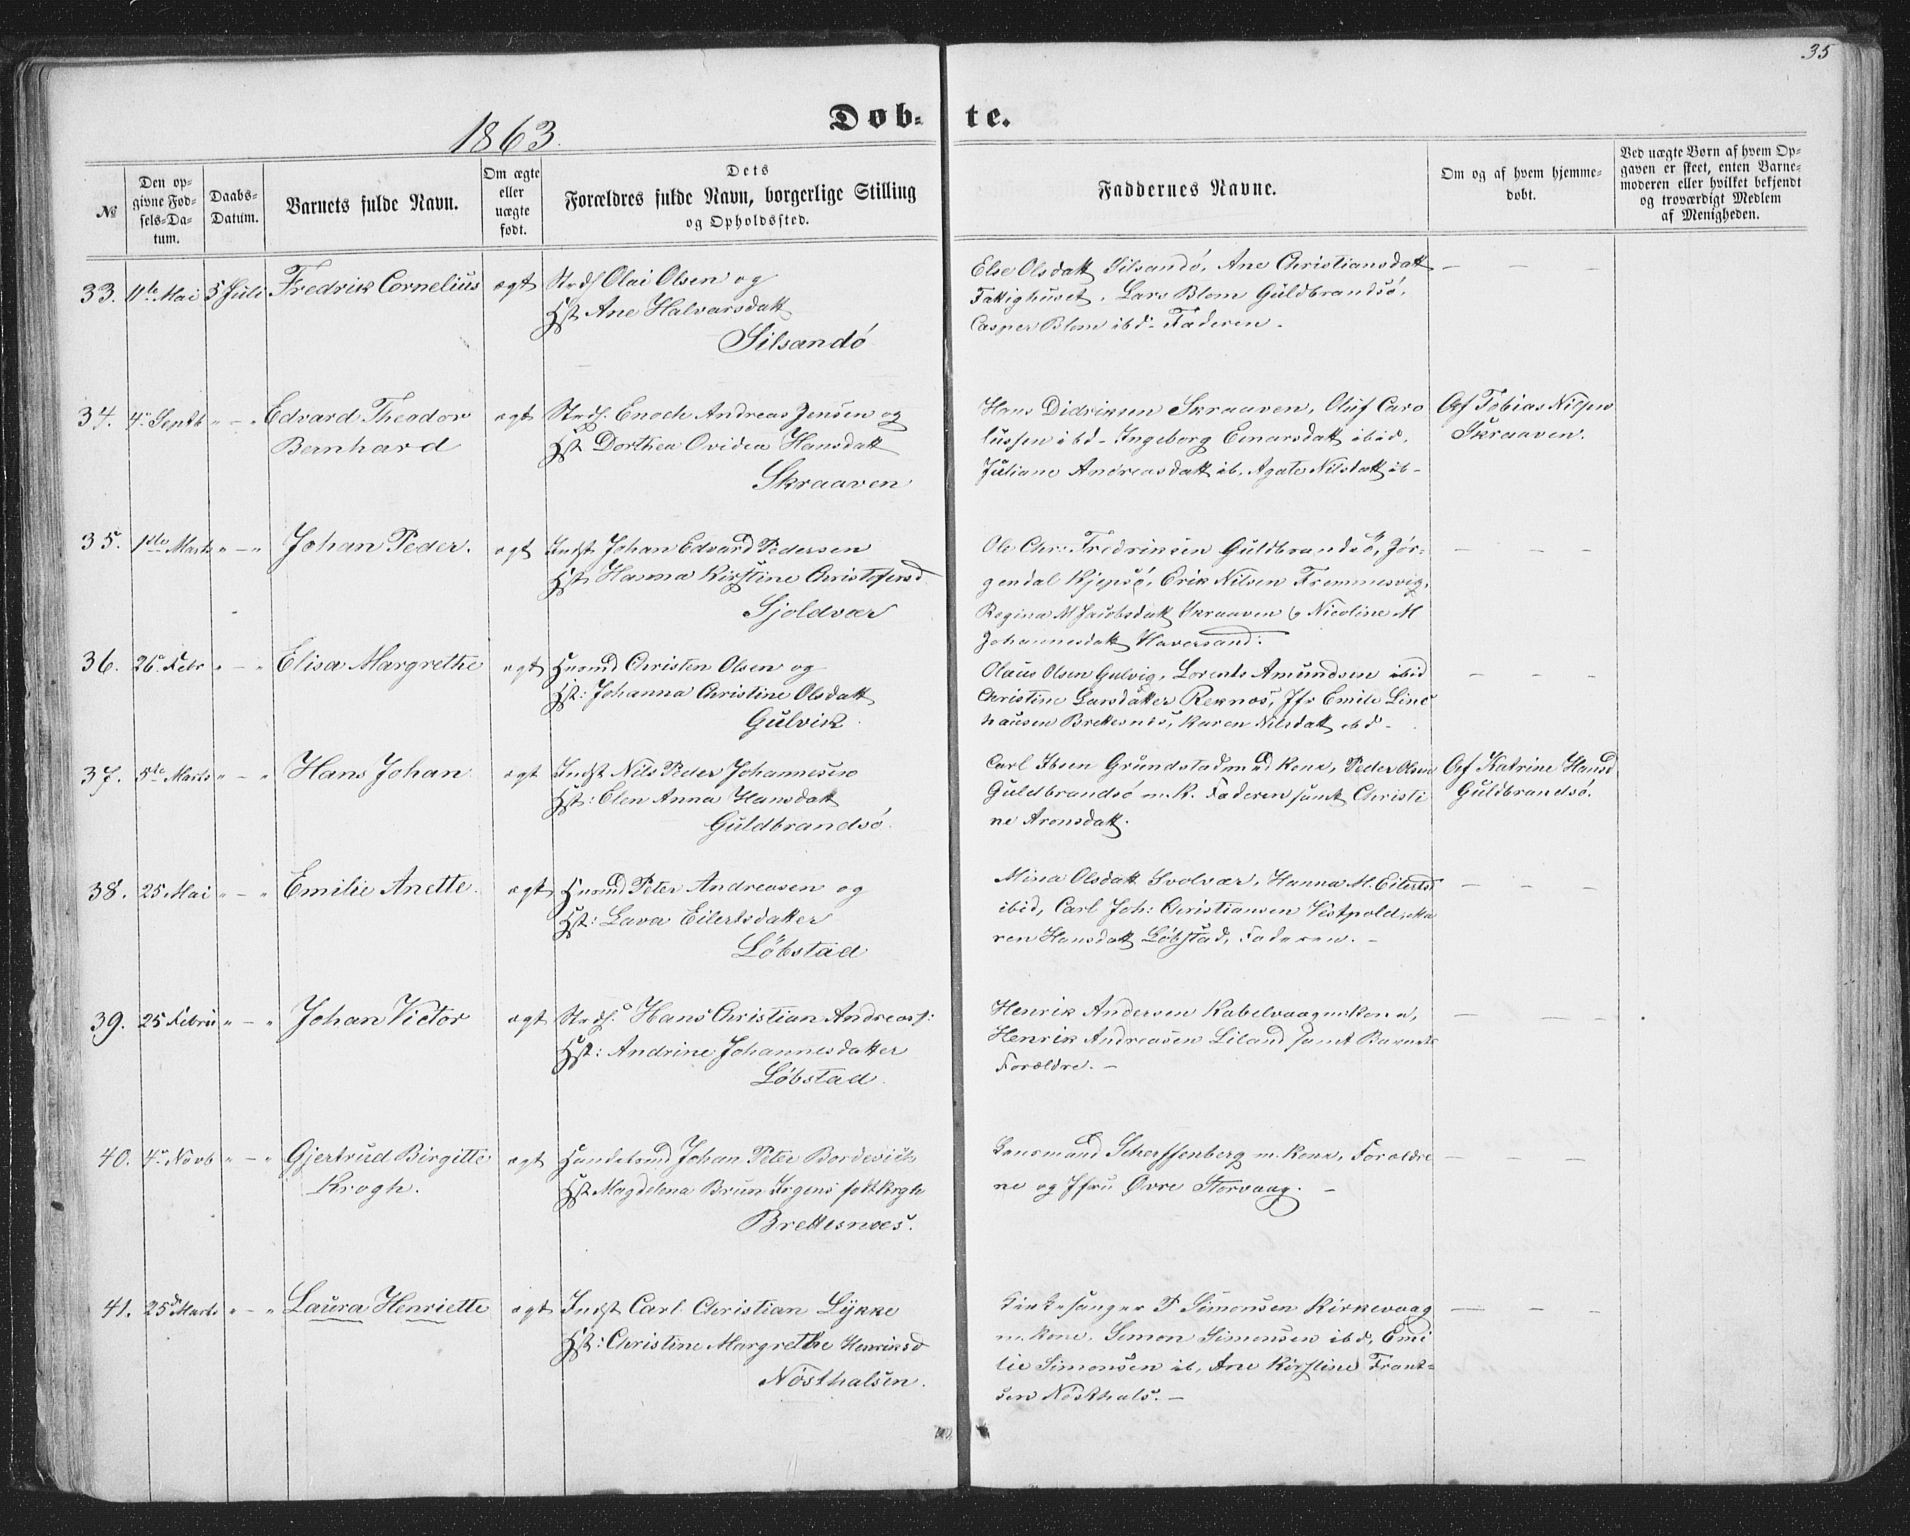 35
1863.
Døb-te.
№
Den op-
givne Fød-
sels-Da-
tum.
Daabs-
Datum.
Barnets fulde Navn.
Om ægte
eller
uægte
født.
Dets
Forældres fulde Navn, borgerlige Stilling
og Opholdssted.
Faddernes Navne.
Om og af hvem hjemme-
døbt.
Ved uægte Børn af hvem Op-
gaven er skeet, enten Barne-
moderen eller hvilket bekjendt
og troværdigt Medlem
af Menigheden.
33. 11te Mai 5 Juli Fredrik Cornelius ægt Strds Olai Olsen og
Hst Ane Halvarsdatt
Silsandø
Else Olsdatt Silsandø, Ane Christiansdatt
Fattighuset, Lars Blom Guldbrandsø,
Casper Blom ibd - Faderen -
— — —
34. 4 Septb " — " Edvard Theodor
Bernhard
ægt Strds. Enoch Andreas Jensen og
Hst Dorthea Ovidea Hansdatt
Skraaven
Hans Didriksen Skraaven, Oluf Caro
lussen ibd - Ingeborg Einarsdatt ibid,
Juliane Andreasdatt ib, Agate Nilsdatt ib -
Af Tobias Nilsen
Skraaven.
35. 1ste Marts " — " Johan Peder. ægt Indst Johan Edvard Pedersen
Hst Hanna Kirstine Christofersd
Sjoldvær
Ole Chr: Fredriksen Guldbrandsø, Jør-
gendal Kjepsø, Erik Nilsen Fremmesvig,
Regina M Jacobsdatt Skraaven & Nicoline M
Johannesdatt Haversand:
— — —
36. 26 Febr " — " Elisa Margrethe ægt Husmd Christen Olsen og
Hst: Johanna Christine Olsdatt
Gulvik
Olaus Olsen Gulvig, Lorents Amundsen ibid
Christine Larsdatter Reknes, Jfr Emile Linc
hausen Brettesnes, Karen Nilsdatt ibd -
— — —
37. 5te Marts " — " Hans Johan ægt Indst Nils Peder Johannesen
Hst: Elen Anna Hansdatt
Guldbrandsø.
Carl Ibsen Grundstad med Kone, Peder Olsen
Guldbrandsø m. K. Faderen samt Christi
ne Aronsdatt.
Af Katrine Hansd
Guldbrandsø.
38. 25 Mai " — " Emilie Anette. ægt Husmd Peter Andreasen og
Hst: Lava Eilertsdatter
Løbstad
Mina Olsdatt Svolvær, Hanna M. Eilertsd
ibid, Carl Joh: Christiansen Vestpold, Ma
ren Hansdatt Løbstad, Faderen. -
— — —
39. 25 Febru " — " Johan Victor ægt Strds. Hans Christian Andreass:
Hst: Andrine Johannesdatter
Løbstad.
Henrik Andersen Kabelvaag m Kone,
Henrik Andreasen Liland samt Barnets
Forældre. -
— — —
40. 4 Novb " — " Gjertrud Birgitte
Krogh.
ægt Handelsmd Johan Peter Bordevich
Hst Magdelena Brun Irgens født Krogh
Brettesnæs.
Lensmand Scherffenberg m. Kone, Forældre
ne og Jfru Øvre Storvaag. -
— — —
41. 25 Marts " — " Laura Henriette ægt Indst Carl Christian Lykke
Hst: Christine Margrethe Henriksd
Nøsthalsen.
Kirkesanger P Simonsen Kirkevaag
m. Kone, Simon Simonsen ibd, Emi
lie Simonsen ib, Ane Kirstine Frant-
sen Nøsthals. -
— — —